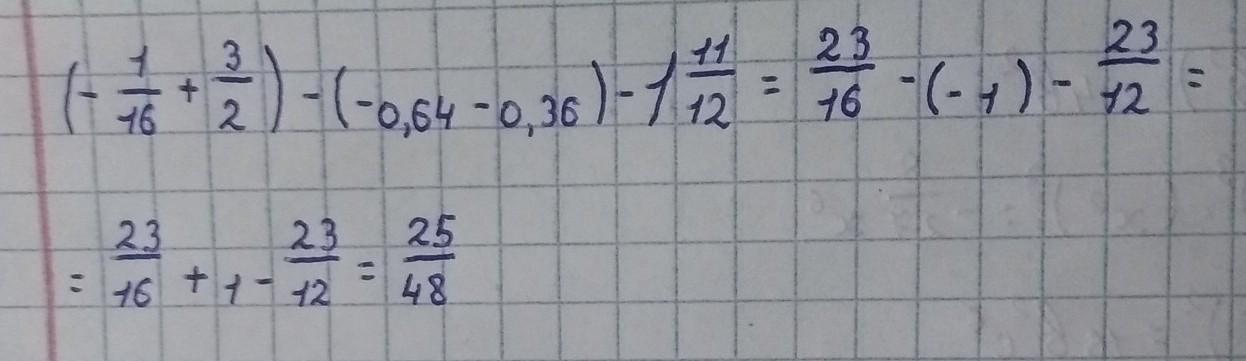 (- 1/16 + 3/2) - (-0,64 - 0,36) - 1 11/12 = 23/16 - (-1) - 23/12 =
= 23/16 + 1 - 23/12 = 25/48